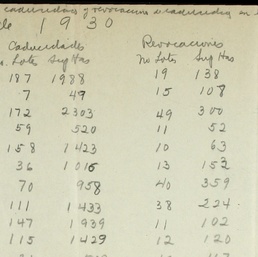 caducidades y revocacion
1930
Caducidades Revocaciones
Lotes Sup Has No Lotes Sup Has
187 1988 19 138
7 49 15 108
172 2303 49 300
59 520 11 52
158 1423 10 63
36 1016 13 153
70 958 40 359
111 1433 38 224
147 1939 11 102
115 1429 12 120